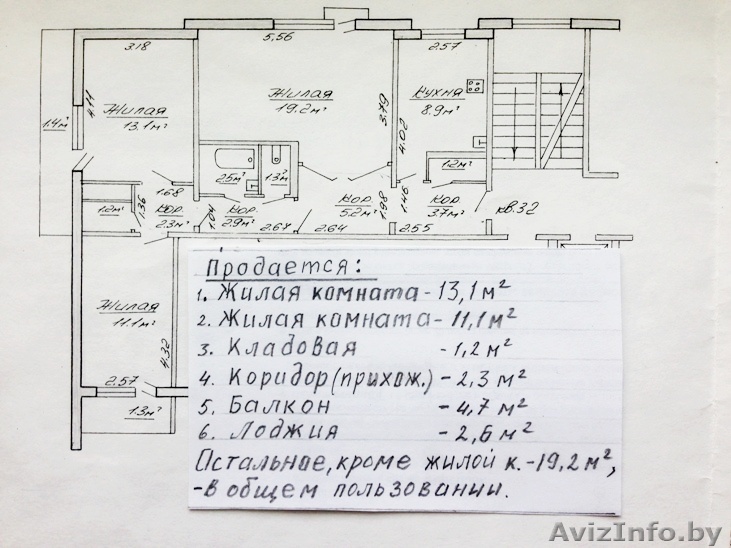 3.18
5,56
2.57
4.11
Жилая
13.1м²
1.4м²
Жилая
19.2м²
3.79
4.02
Кухня
8.9м²
1.2м²
2.5м²
1.3м²
1.68
1.2м²
1.36
Кор.
2.3м²
1.04
Кор.
2.9м²
2.67
Кор.
5.2м²
2.64
1.98
1.46
Кор.
3.7м²
2.55
кв.32
Жилая
11.1м²
4.32
2.57
1.3м²
Продается:
1. Жилая комната - 13,1 м²
2. Жилая комната - 11,1 м²
3. Кладовая - 1,2 м²
4. Коридор (прихож.) - 2,3 м²
5. Балкон - 4,7 м²
6. Лоджия - 2,6 м²
Остальное, кроме жилой к. - 19,2 м²,
- в общем пользовании.
AvizInfo.by